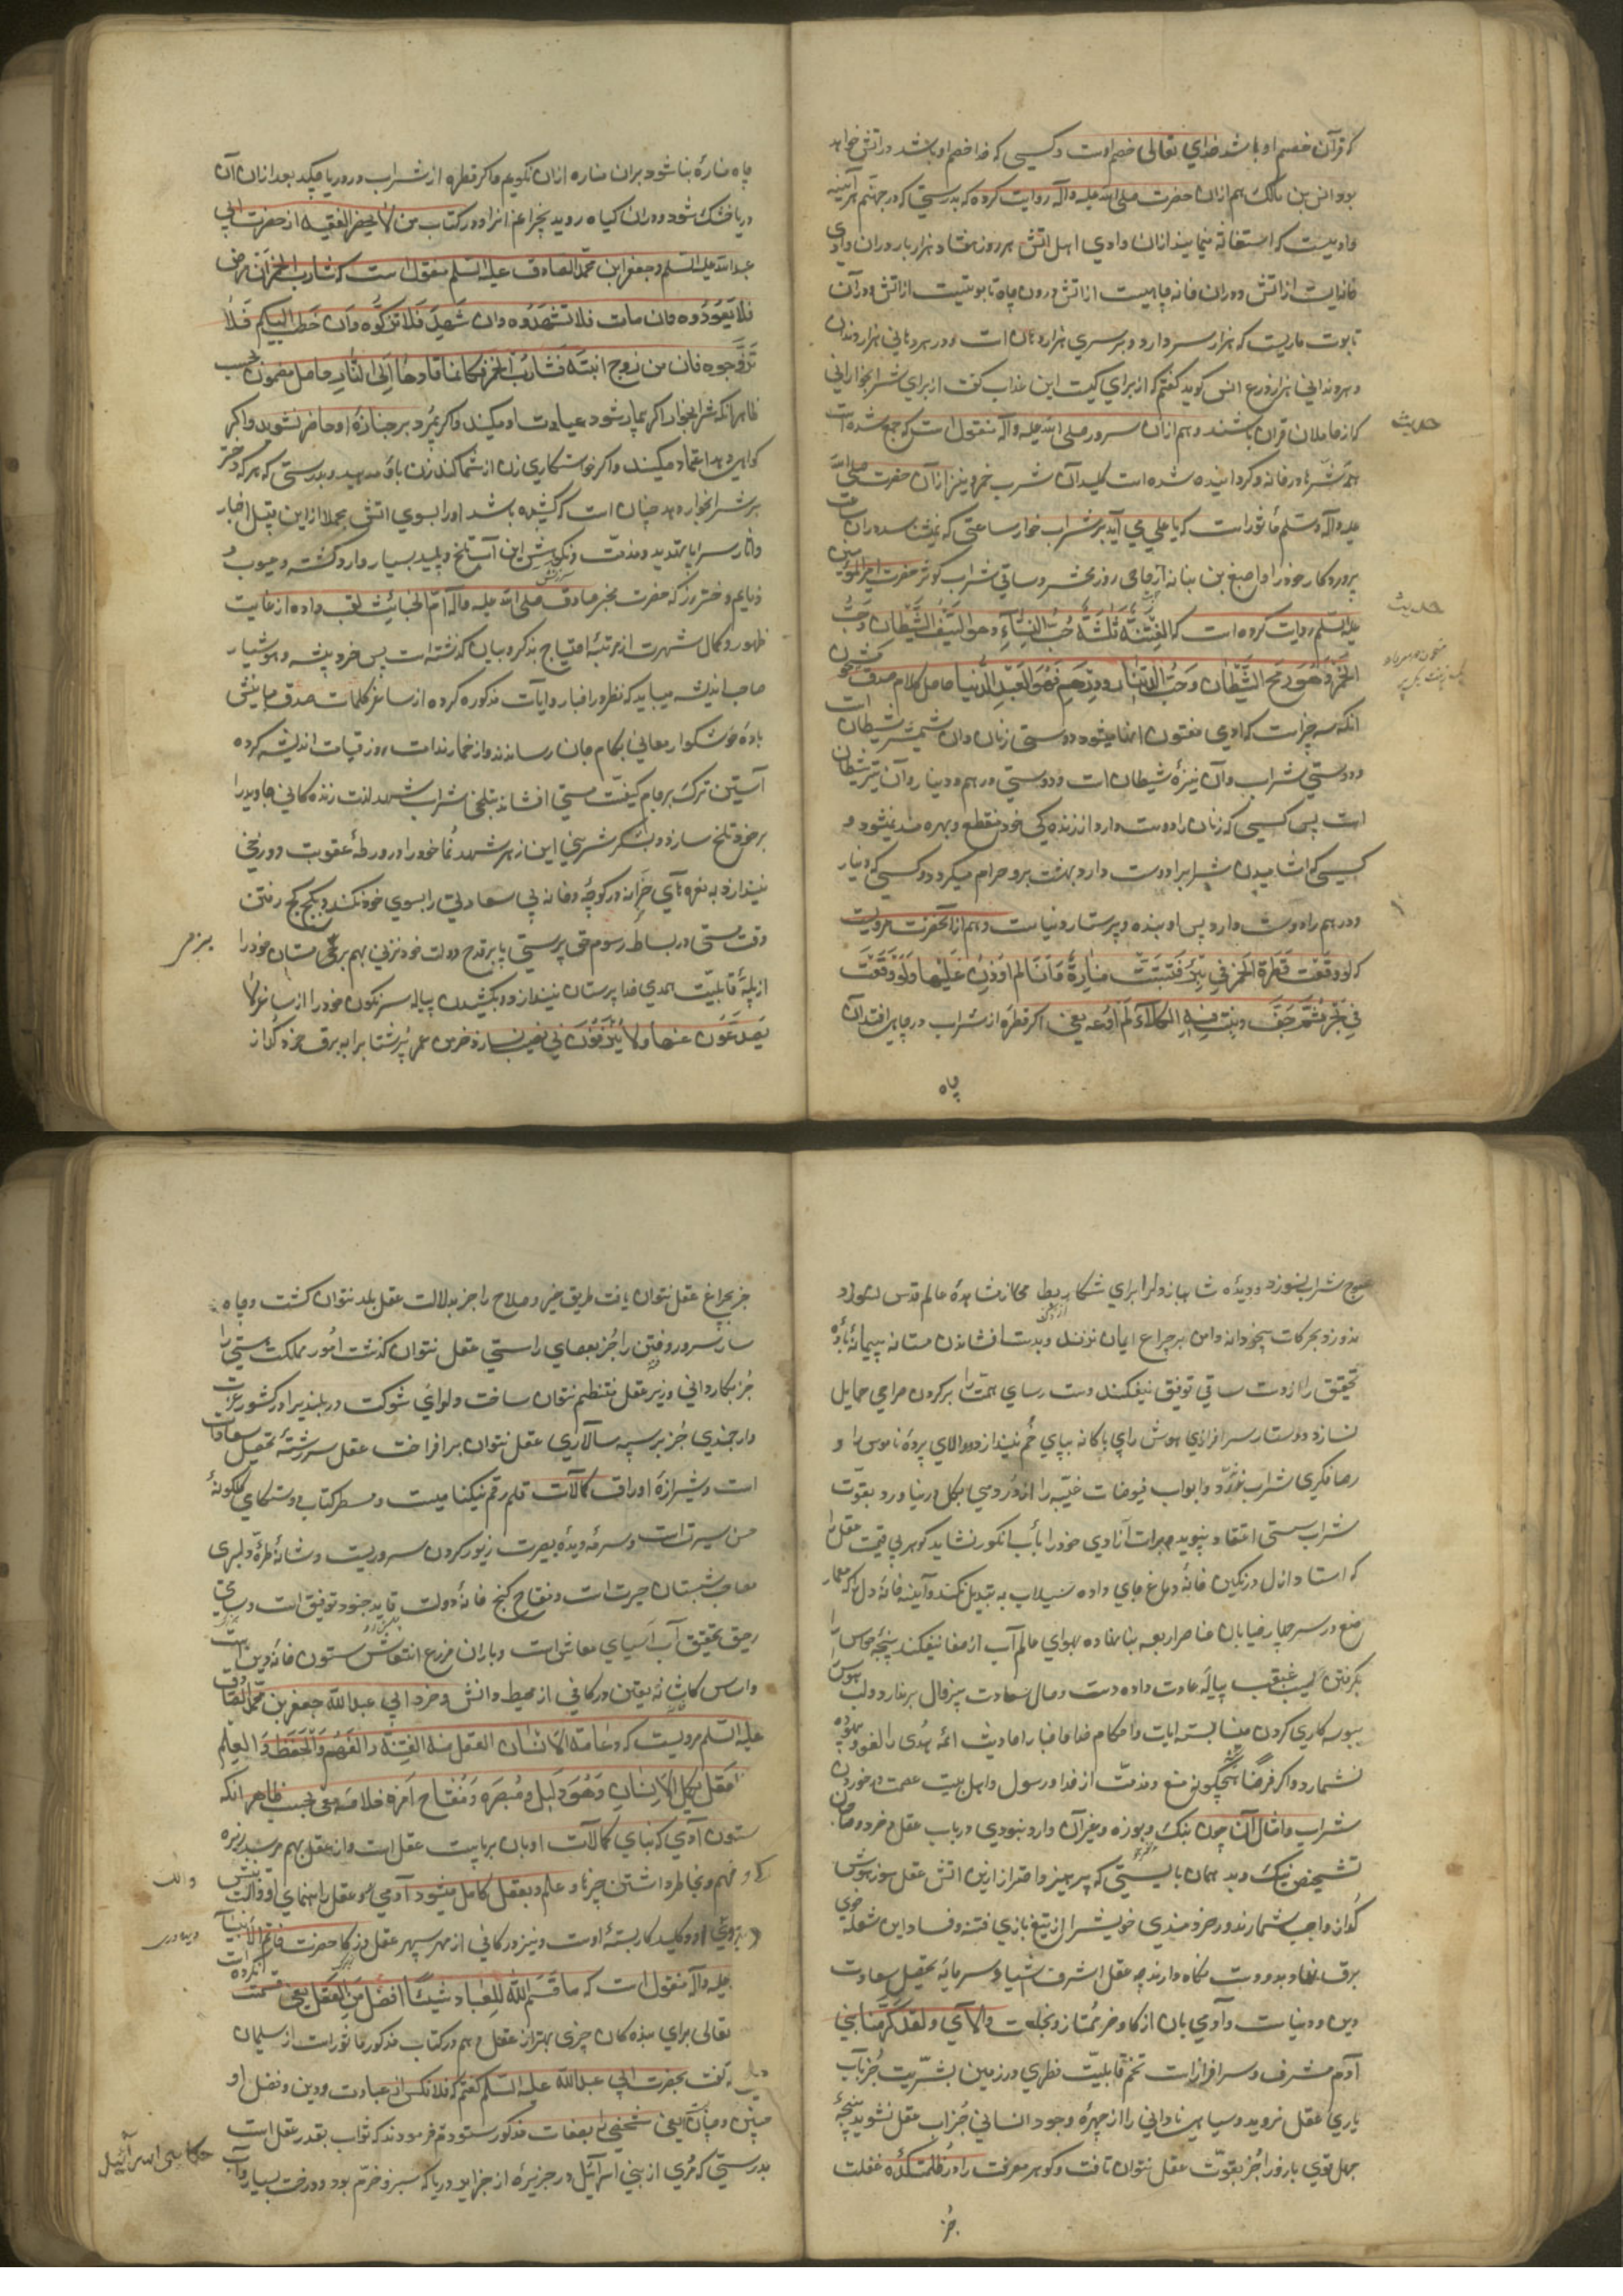 که قرآن خصم او باشد خدای تعالی خصم اوست و کسی که خدا خصم او باشد در آتش خواهد
بود انس بن مالک هم ازان حضرت صلی الله علیه و آله روایت کرده که بدرستی که در جهنم هر آینه
وادییست که استغاثه مینمایند ازان وادی اهل آتش هر روز هفتاد هزار بار و دران وادی
خانه‌ایست از آتش و دران خانه چاهیست از آتش و درون چاه تابوتیست از آتش و در آن
تابوت ماریست که هزار سر دارد و بر سری هزار دهان است و در هر دهانی هزار دندان
و هر دندانی هزار ذرع انس کوید کفتم که از برای کیست این عذاب کفت از برای شرابخوارانی
که از حاملان قرآن باشند و هم ازان سرور صلی الله علیه و آله منقول است که جمع شده است
حدیث
همه شرها در خانه و کردانیده شده است کلید آن شرب خمر و نیز از آن حضرت صلی الله
علیه و آله و سلم مأثور است که یا علی می آید بر شراب خوار ساعتی که نمیشناسد دران ساعت
پروردکار خود را و اصبغ بن نباته از حامی روز محشر و ساقی شراب کوثر حضرت امیر المؤمنین
حدیث
علیه السلم روایت کرده است که الفِتنَة ثَلثَة حُبُّ النِساءِ و هو سَیفُ الشَّیطان و حُبّ
الخَمر و هُوَ رمح الشَّیطان و حَبّ الدینار و درهم فهو العبد الدُّنیا حاصل کلام صدق
آنکه سه چیز است که آدمی مفتون آنها میشود دوستی زنان و آن شمشیر شیطان است
و دوستی شراب و آن نیزهٔ شیطان است و دوستی درهم و دینار و آن تیر شیطان
است پس کسی که زنان را دوست دارد از زندکی خود منقطع و بهره مند نمیشود و
کسی که آشامیدن شراب را دوست دارد بهشت برو حرام میکردد و کسی که دینار
و درهم را دوست دارد پس او بنده و پرستار دنیاست و هم از آنحضرت مرویست
که لو وقعت قطرة الخمر فی بئر فنبتت منارةٌ مَا انا لم اوذن عَلَیها وَلَو وَقَعَت
فی بحر ثمّ جَفَّ و نبت فیه الکلآء لم اوعه یعنی اکر قطرهٔ از شراب در چاهی افتد ازان
چاه
چاه منارهٔ بنا شود بران مناره اذان نکویم و اکر قطره از شراب در دریا چکید بعد ازان آن
دریا خشک شود و دران کیاه روید نچرانم انرا و در کتاب من لا یحضر الفقیه از حضرت ابی
عبدالله علیه السلم و جعفر ابن محمد الصادق علیه السلم منقول است که شارب الخمر ان مرض
فلا تعودوه وان مات فلا تشهدوه وان شهد فلا تزکّوه وان خطب الیکم فلا
تزوّجوه فان من زوج ابنته شاربَ الخمر فکانما قادها اِلَی النار حاصل مضمون بحسب
ظاهر آنکه شرابخوار اکر بیمار شود عیادت او مکنید و اکر بمیرد بر جنازهٔ او حاضر نشوید و اکر
کواهی دهد اعتماد مکنید و اکر خواستکاری زن از شما کند زن باو مدهید و بدرستی که هر که دختر
بشرابخوار دهد چنان است که کشیده باشد او را بسوی آتش مجملا ازین قبیل اخبار
و آثار سراپا تهدید و مذمت و نکوهش این آب تلخ و پلید بسیار وارد کشته و عیوب
ذمایم دختر رز که حضرت مخبر صادق صلی الله علیه و آله ام الخبائث لقب داده از غایت
ظهور و کمال شهرت از مرتبهٔ احتیاج بذکر و بیان کذشته است پس خرد پیشه و هوشیار
صاحب اندیشه میباید که نظر در اخبار و آیات مذکوره کرده از ساغر کلمات صدق
بادهٔ خوشکوار معانی بکام جان رساند و از خمار ندامت روز قیامت اندیشه کرده
آستین ترک بر جام کیفیت مستی افشاند و بتلخی شراب شهد لذت زندکانی جاوید را
بر خود تلخ سازد و بشکر شیرینی این زهر شهد نما خود را در ورطهٔ عقوبت دوزخی
نیندازد به نعره های در کوچه و خانه پی سعادتی را بسوی خود نکند و بکج کج رفتن
وقت مستی در بساط رسوم حق پرستی پا بر قدح دولت خود نزنی بهم مستان خود را
از پلهٔ قابلیت احمدی خدا پرستان نیندازد و بکشیدن پیاله سرنکون خود را از ساغر لا
یصدعون عنها ولا ینزفون بی نصیب نسازد خرمن عمر پر شتاب را به برق خرده کداز
صبوح شراب نسوزد و دیدهٔ شاهباز دل را برای شکار بط می از مشاهدهٔ عالم قدس
ندوزد و بحرکات بیخودانه دامن بر چراغ ایمان نزند و بدست افشاندن مستانه پیمانهٔ بادهٔ
تحقیق را از دست ساقی توفیق نیفکند دست رسای همت را بر کردن صراحی حمایل
نسازد و دستار سرافرازی هوش را پی باکانه بپای خم نیندازد و والای پردهٔ ناموس را و
شراب سستی اعتقاد نپوید و برات آزادی خود را بآب انکور نشاید کوهر بی قیمت عقل را
که استاد ازل در نکین خانهٔ دماغ جای داده بسیلاب به تبدیل نکند و آینه خانهٔ دل را که معمار
صنع در سر چهار خیابان عناصر اربعه بنا نهاده بهوای عالم آب از صفا نیفکند پنجهٔ حواس را
بکرفتن سیب غبغب پیاله عادت داده دست وصال سعادت
ببوسه کاری کردن مینا بسته آیات و احکام خدا و اخبار و احادیث ائمه هدی را لغو و بیهوده
نشمارد و اکر فرضا هیچکونه منع و مذمت از خدا و رسول و اهل بیت عصمت در خوردن
شراب و امثال آن چون بنک و بوزه و غیر آن وارد نبودی ارباب عقل و خرد و صاحبان
تشخیص نیک و بد همان بایستی که پرهیز و احتراز ازین آتش عقل سوز هوش
کداز واجب شمارند و خردمندی خویش را از تیغ بازی فتنه و فساد این شعله خوی
برق نهاد بدور دست نکاه دارند چه عقل اشرف اشیاء و سرمایه تحصیل سعادت
دین و دنیاست و آدمی بان از کاو و خر ممتاز و بخلعت والای و لقد کرمنا بنی
آدم مشرف و سرافراز است تخم قابلیت فطری در زمین بشریت جز بآب
یاری عقل نروید و سیاهی نادانی را از چهرهٔ وجود انسانی جز آب عقل نشوید پنجهٔ
جهل قوی بازو را جز بقوت عقل نتوان تافت و کوهر معرفت را در ظلمتکدهٔ غفلت
جز
جز بچراغ عقل نتوان یافت طریق خیر و صلاح را جز بدلالت عقل بلد نتوان کشت و چاه
سار سرور و فتن را جز بعصای راستی عقل نتوان کذشت امور مملکت هستی را
جز بکاردانی وزیر عقل منتظم نتوان ساخت و لوای شوکت و سربلندی را در کشور عزت
و ارجمندی جز بر سپه سالاری عقل نتوان برافراخت عقل سررشتهٔ تحصیل سعادات
است و شیرازهٔ اوراق کمالات قلم رقم نیکنامیست و مسطر کتاب دستکاهی کلکونهٔ
حسن سیرت است و سرمهٔ دیدهٔ بصیرت زیور کردن سروریست و شانهٔ طرهٔ دلبری
شبستان حیرت است و مفتاح کنج خانهٔ دولت قاید جنود توفیق است و ساقی
رحیق تحقیق آب آسیای معاش است و باران مزرع انتعاش ستون خانهٔ دین است
و اساس کاشانهٔ یقین در کافی از محیط دانش و خرد ابی عبدالله جعفر بن محمد الصادق
علیه السلم مرویست که دعامة الانسان العقل منه الفطنة والفهم والحفظ والعلم
بالعقل یکمل الانسان وَهُوَ دَلیله و مُبصِره وَ مِفتاح اَمره خلاصه معنی بحسب ظاهر آنکه
ستون آدمی که بنای کمالات او بان برپاست عقل است و از عقل بهم میرسد زیرکی
و فهم و بخاطر داشتن چیزها و علم و بعقل کامل میشود آدمی و عقل راهنمای او و آلت بینش
او و کلید کار بستهٔ اوست و نیز در کافی از مهر سپهر عقل و ذکا حضرت خاتم الانبیا
علیه و آله منقول است که ما قسم الله للعباد شیئاً افضل من العقل یعنی قسمت نکرده است
تعالی برای بنده کان چیزی بهتر از عقل و هم در کتاب مذکور مأثور است از سلیمان
دیلمی که کفت بحضرت ابی عبدالله علیه السلم کفتم که فلانکس از عبادت و دین و فضل او
چنین و چنان یعنی شخصی را بصفات مذکور ستودم فرمودند که ثواب بقدر عقل است
بدرستی که مردی از بنی اسرائیل در جزیرهٔ از جزایر دریا که سبز و خرم بود و درخت بسیار و آب
حکایت بنی اسرآئیل